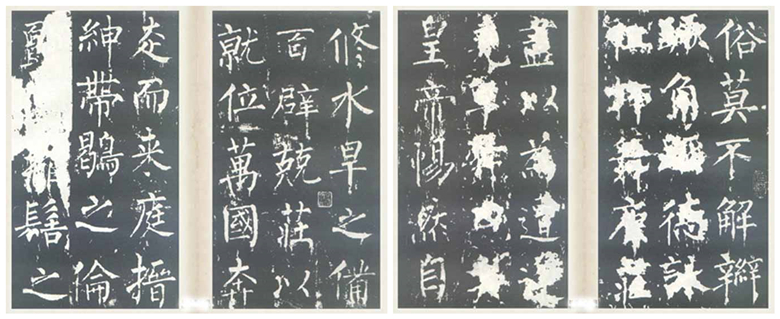 修水旱之備
百辟兢莊以
就位萬國奔
走而來庭搢
紳帶鶡之倫
髻之
俗莫不解辮
角德詠
抃舞康莊
盡以為道
皇帝惕然自